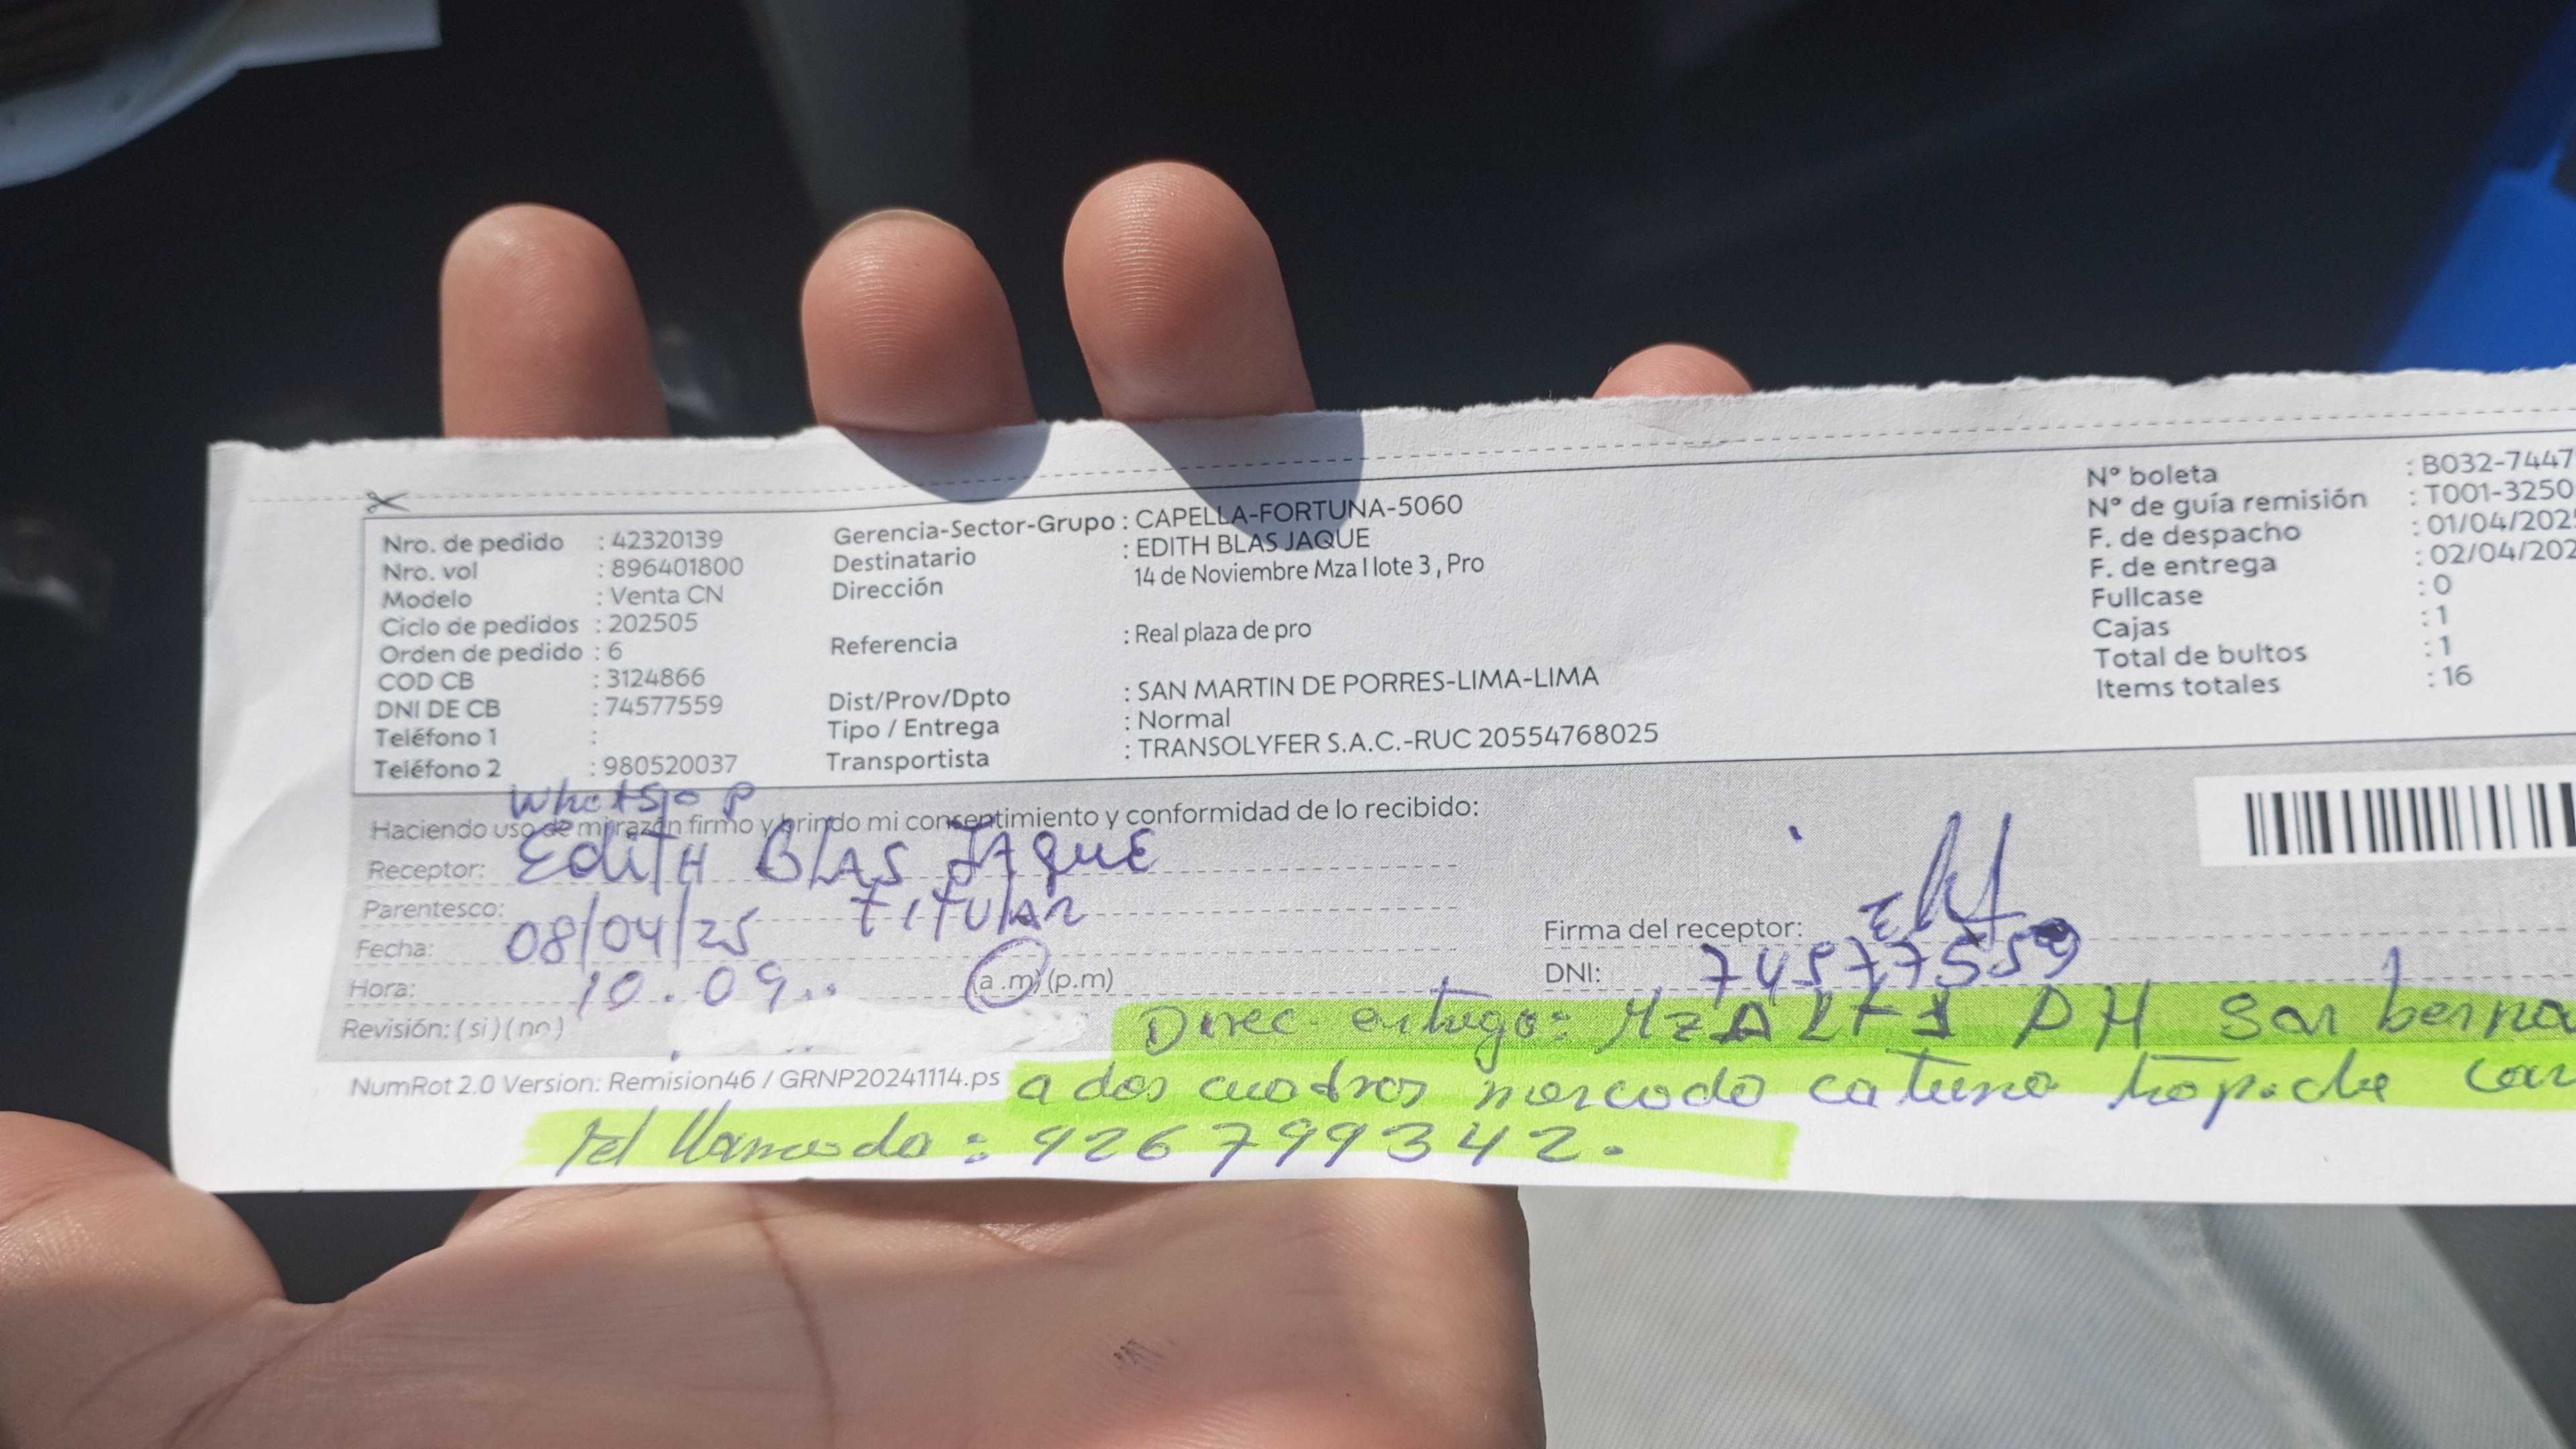 Nro. de pedido : 42320139
Nro. vol : 896401800
Modelo : Venta CN
Ciclo de pedidos : 202505
Orden de pedido : 6
COD CB : 3124866
DNI DE CB : 74577559
Teléfono 1 :
Teléfono 2 : 980520037
Gerencia-Sector-Grupo : CAPELLA-FORTUNA-5060
Destinatario : EDITH BLAS JAQUE
Dirección 14 de Noviembre Mza I lote 3 , Pro
Referencia : Real plaza de pro
Dist/Prov/Dpto : SAN MARTIN DE PORRES-LIMA-LIMA
Tipo / Entrega : Normal
Transportista : TRANSOLYFER S.A.C.-RUC 20554768025
N° boleta : B032-7447
N° de guía remisión : T001-3250
F. de despacho : 01/04/202
F. de entrega : 02/04/202
Fullcase : 0
Cajas : 1
Total de bultos : 1
Items totales : 16
Haciendo uso de mi razón firmo y brindo mi consentimiento y conformidad de lo recibido:
Receptor: Edith BlAS JAque
Parentesco: TITULAR
Fecha: 08/04/25
Hora: 10.09.. (a.m) (p.m)
Revisión: (si) (no)
Firma del receptor:
DNI: 74577559
Direc. entrega: MzA Lt 1 San
NumRot 2.0 Version: Remision46 / GRNP20241114.ps
a dos cuadras mercado
tel llamada : 926799342.